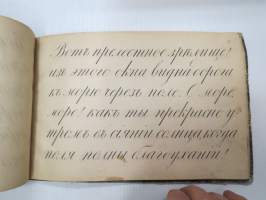 Вотъ прелестное зрѣлище!
изъ этого окна видна дорога
къ морю черезъ поле. О море,
море! какъ ты прекрасно у-
тромъ въ сіяніи солнца, когда
поля полны благоуханія!